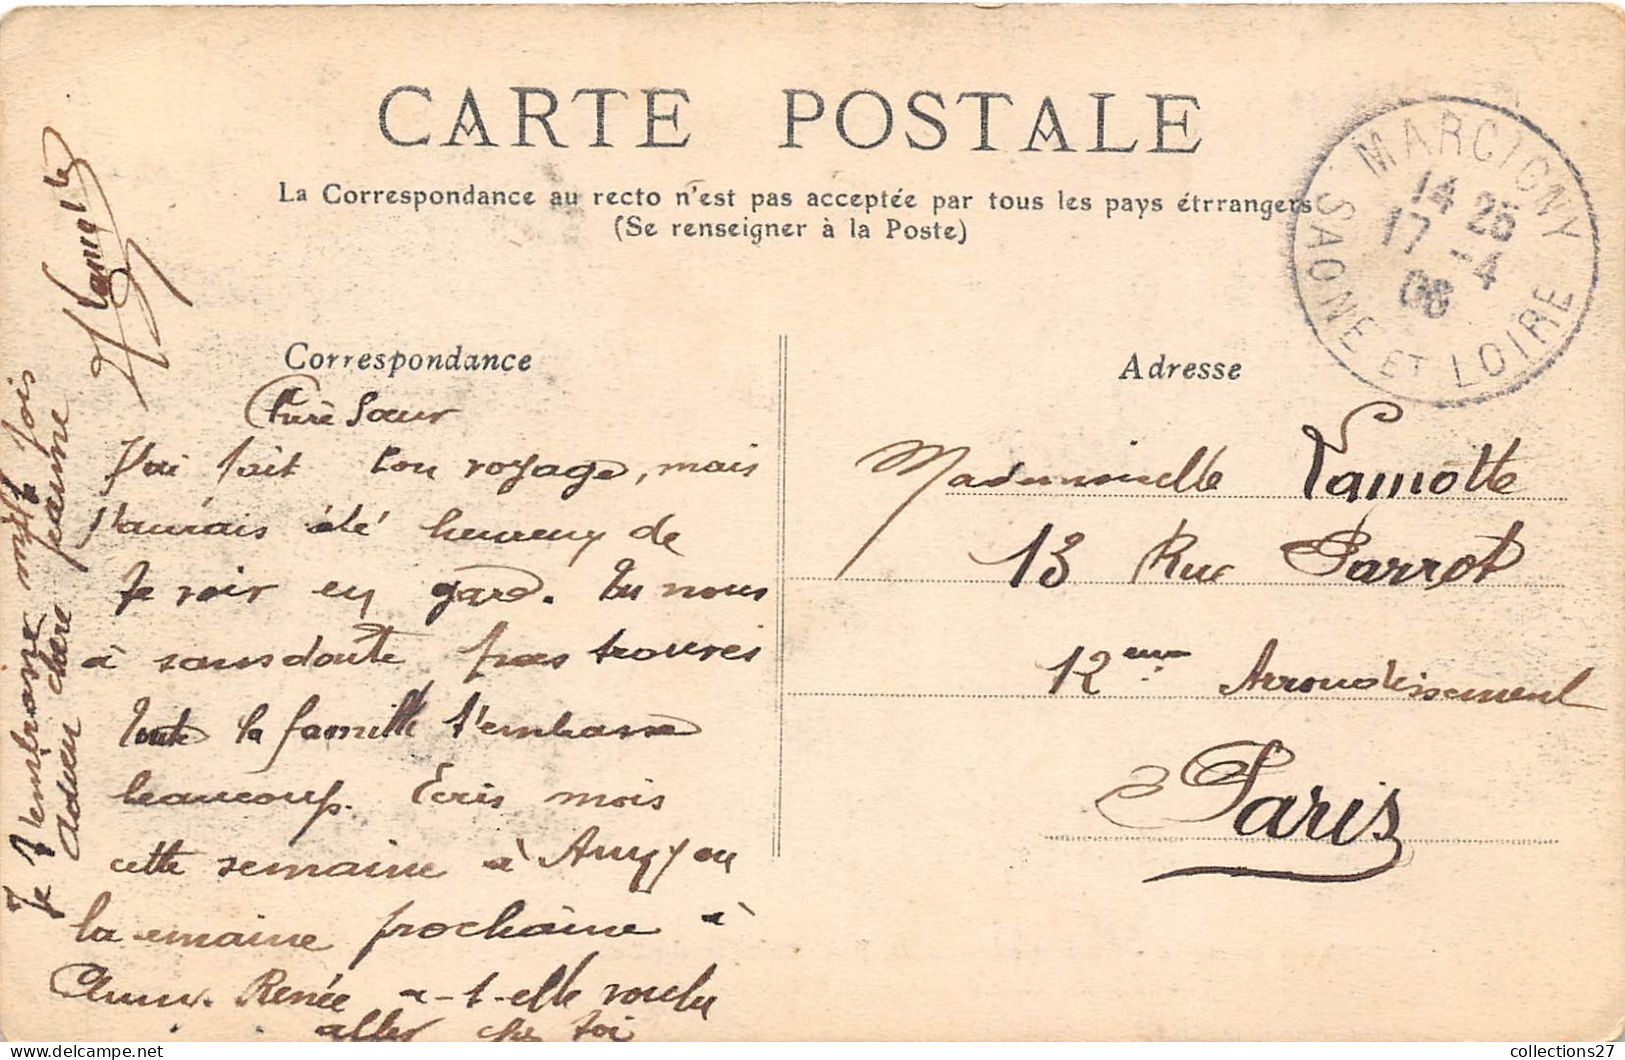 CARTE POSTALE
La Correspondance au recto n'est pas acceptée par tous les pays étrrangers
(Se renseigner à la Poste)
MARCIGNY
14 25
17 - 4
08
SAONE ET LOIRE
Correspondance
Adresse
Chère Sœur
J'ai fait bon voyage, mais
j'aurais été heureux de
te voir en gare. Tu nous
à sans doute pas trouvés
Toute la famille t'embrasse
beaucoup. Ecris mois
cette semaine à ou
la semaine prochaine à
Renée a-t-elle voulu
aller chez toi
Je t'embrasse mille fois
Adieu chère jeanne
Lamotte
Mademoiselle Lamotte
13 Rue Parrot
12eme Arrondissement
Paris
collections27